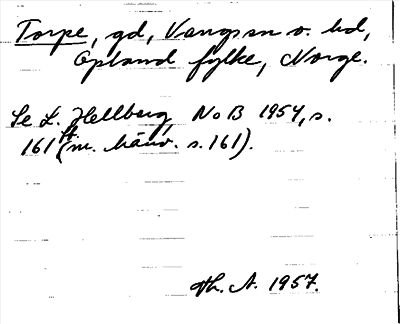 Torpe, gd, Vangs sn o. hd,
Opland fylke, Norge.
Se L. Hellberg, NoB 1954, s.
161 ff. (m. hänv. s. 161).
Th. A. 1957.